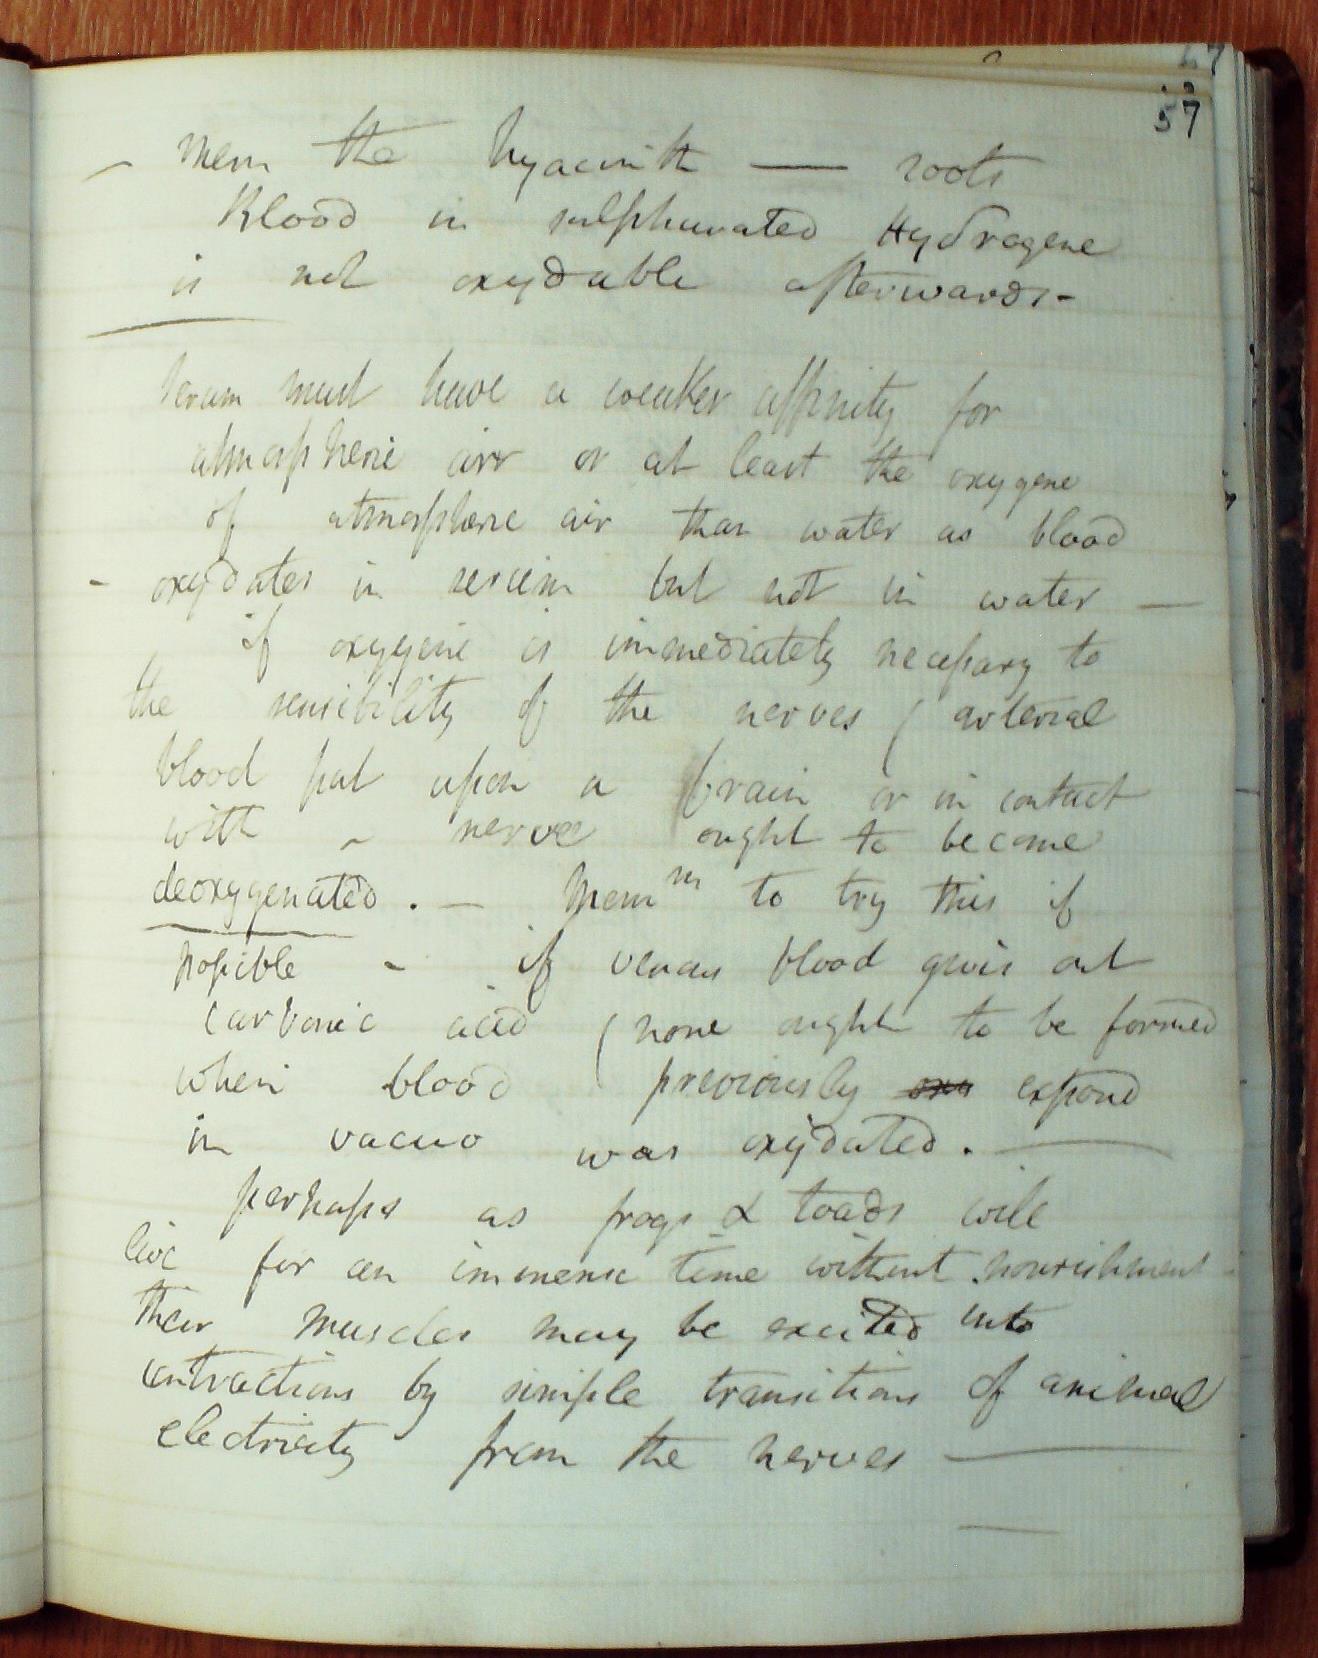 57
- Mem the hyacinth — roots
Blood in sulphurated Hydrogene
is not oxydable afterwards -
serum must have a weaker affinity for
atmospheric air or at least the oxygene
of atmospheric air than water as blood
- oxydates in serum but not in water —
if oxygene is immediately necessary to
the sensibility of the nerves ( arterial
blood put upon a brain or in contact
with a nerve ought to become
deoxygenated . — Mem to try this if
possible - if venous blood gives out
carbonic acid ( none ought to be formed
when blood previously exposed
in vacuo was oxydated . —
perhaps as frogs & toads will
live for an immense time without nourishment
their muscles may be excited into
contractions by simple transitions of animal
electricity from the nerves —